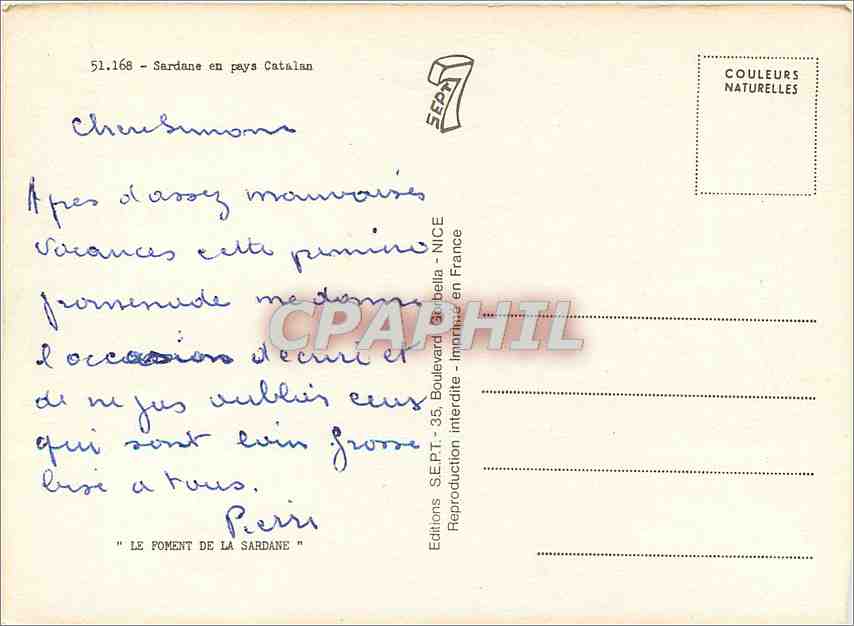 51.168 - Sardane en pays Catalan
SEPT 7
COULEURS
NATURELLES
Chere Simone
Apres d'assez mauvaises
vacances cette premiere
promenade me donne
l'occasion d'ecrire et
de ne pas oublier ceux
qui sont loin Grosse
bise a tous.
Pierre
" LE FOMENT DE LA SARDANE "
Editions S.E.P.T. - 35, Boulevard Gorbella - NICE
Reproduction interdite - Imprimé en France
CPAPHIL